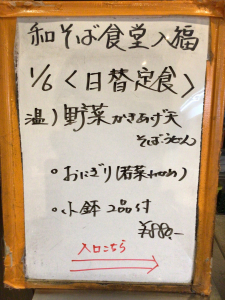 和そば食堂入福
1/6〈日替定食〉
温)野菜かきあげ天
そば・うどん
。おにぎり(若菜わかめ)
。小鉢 2品付
¥880.-
入口こちら